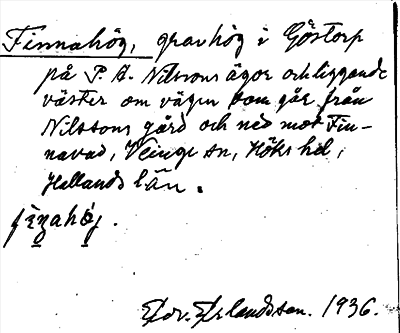 Finnahög, gravhög i Göstorp
på P. A. Nilssons ägor och liggande
väster om vägen som går från
Nilssons gård och ned mot Fin-
navad, Veinge sn, Höks hd,
Hallands län.
Edv. Erlandsson. 1936.